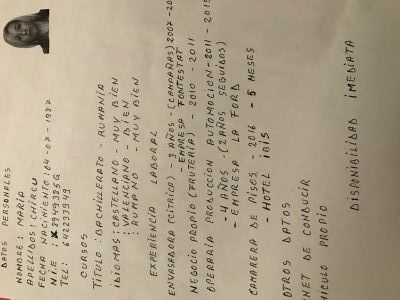 DATOS PERSONALES
NOMBRE: MARÍA
APELLIDOS: CHIRCU
FECHA NACIMIENTO: 04-07-1987
TEL: 642233347
CURSOS
TITULO: BACHILLERATO - RUMANÍA
IDIOMAS: CASTELLANO - MUY BIEN
: VALENCIANO - BIEN
: RUMANO - MUY BIEN
EXPERIENCIA LABORAL
ENVASADORA (CITRICO) - 3 AÑOS - (CAMPAÑAS) 2007-20
EMPRESA FONTESTAT
NEGOCIO PROPIO (FRUTERÍA) - 2010 - 2011
OPERARIA PRODUCCION AUTOMOCION - 2011 - 2015
- 4 AÑOS - (2 AÑOS SEGUIDOS)
- EMPRESA LA FORD
CAMARERA DE PISOS - 2016 - 5 MESES
- HOTEL IBIS
OTROS DATOS
NET DE CONDUCIR
HICULO PROPIO
DISPONIBILIDAD IMEDIATA